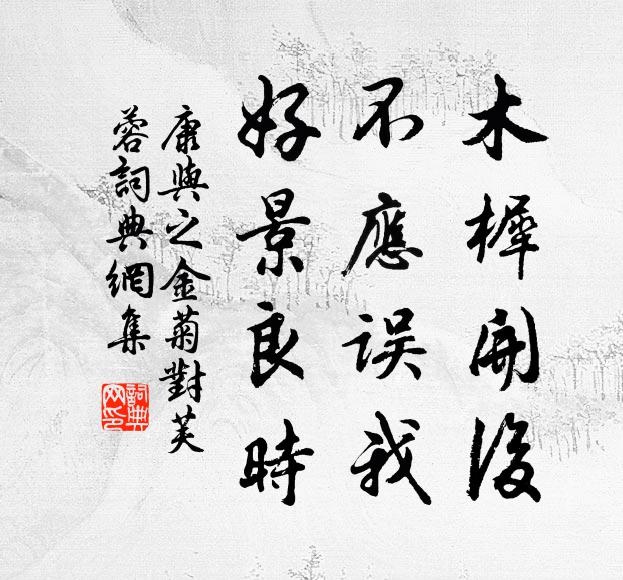 木樨開後
不應誤我
好景良時
康與之金菊對芙
蓉詞典網集
詞典
网印